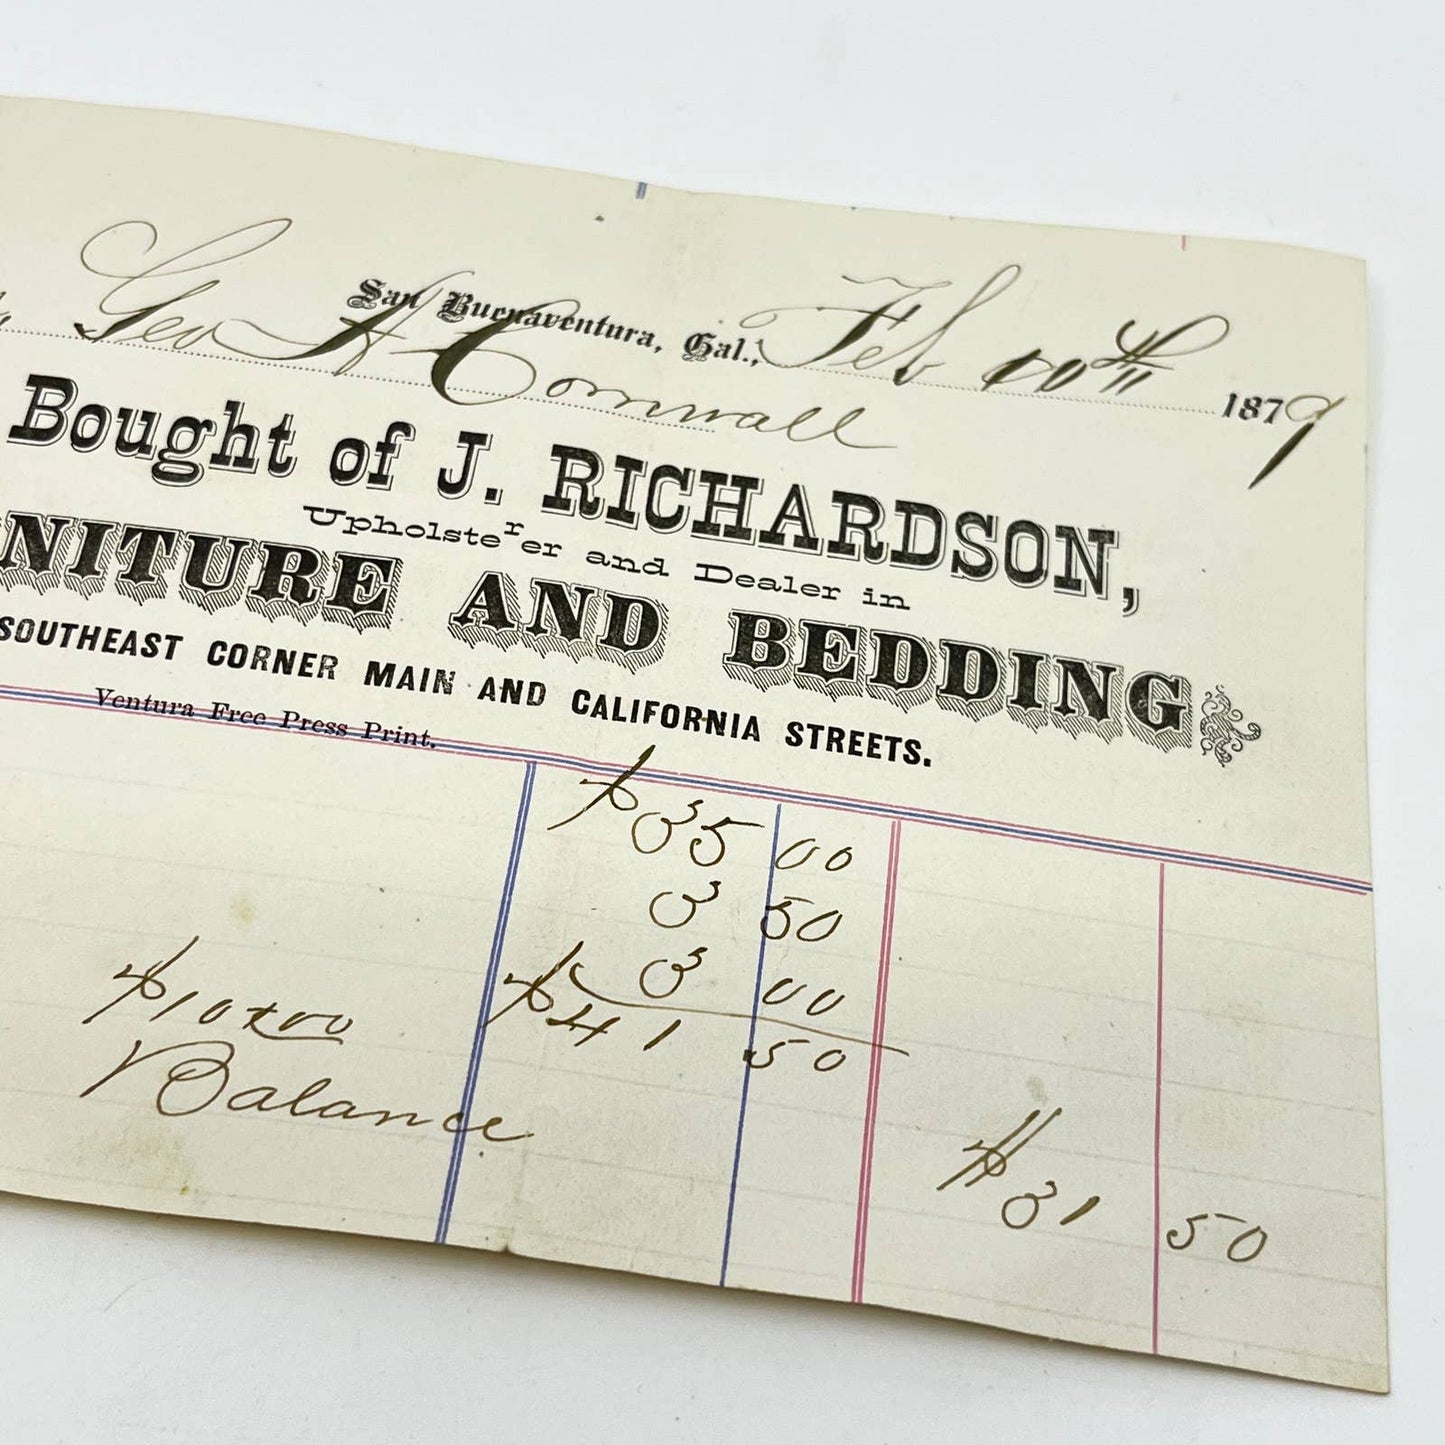 San Buenaventura, Cal., Feb 10th 1879
Geo A Cornwall
Bought of J. RICHARDSON,
Upholsterer and Dealer in
NITURE AND BEDDING
SOUTHEAST CORNER MAIN AND CALIFORNIA STREETS.
Ventura Free Press Print.
$ 35 00
3 50
3 00
$10.00 $41 50
Balance
$31 50